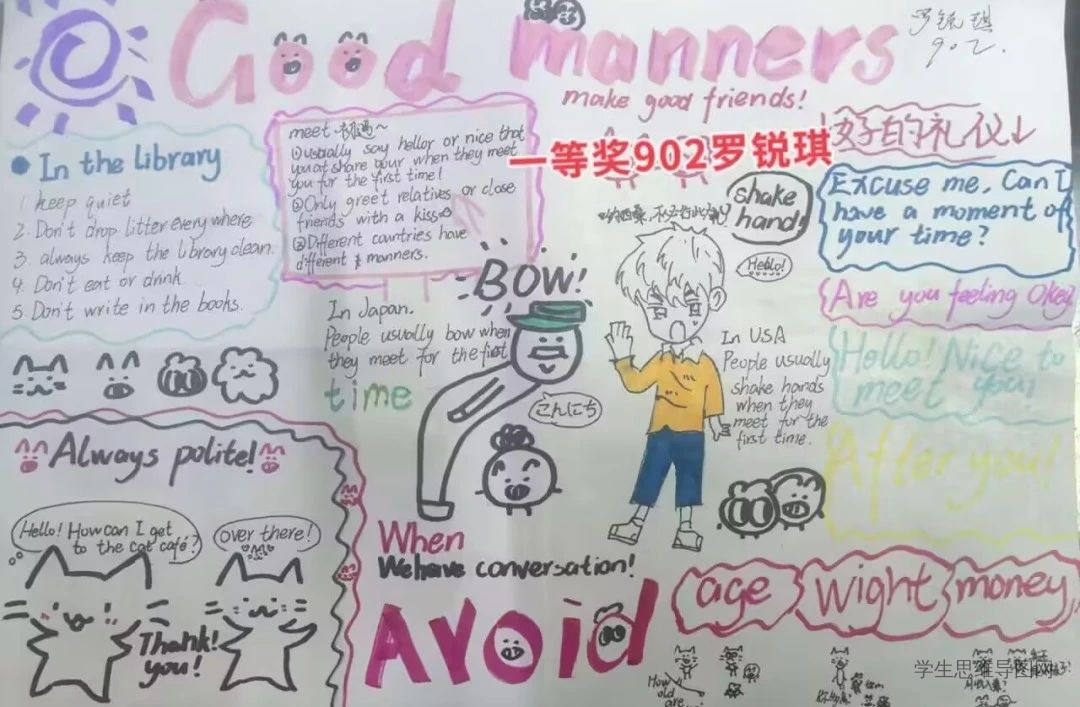 Good manners
罗锐琪
902.
make good friends!
一等奖902罗锐琪
好的礼仪↓
In the Library
1. keep quiet
2. Don't drop litter every where
3. always keep the library clean.
4. Don't eat or drink
5. Don't write in the books.
meet
①usually say hellor or nice that
you at share your when they meet
you fur the first time!
②Only greet relatives or close
friends with a kiss
③Different countries have
different manners.
BOW!
In Japan.
People usually bow when
they meet for the first
time
こんにち
shake
hand!
Hello!
In USA
People usually
shake hands
when they
meet for the
first time.
Excuse me, Can I
have a moment of
your time?
Are you feeling Okey
Hello! Nice to
meet you!
After you!
Always polite!
Hello! How can I get
to the cat café?
over there!
Thank!
you!
When
We have conversation!
Avoid
age
wight
money
How
old
are
学生思维导图网